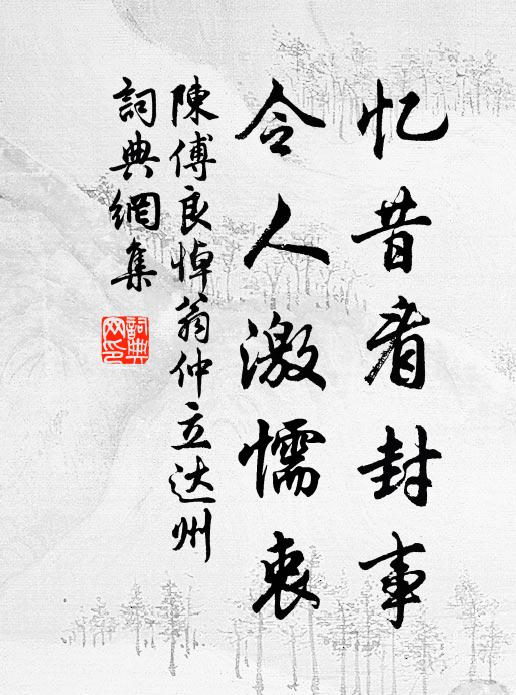 忆昔看封事
令人激懦衷
陳傅良悼翁仲立达州
詞典網集
詞典網印